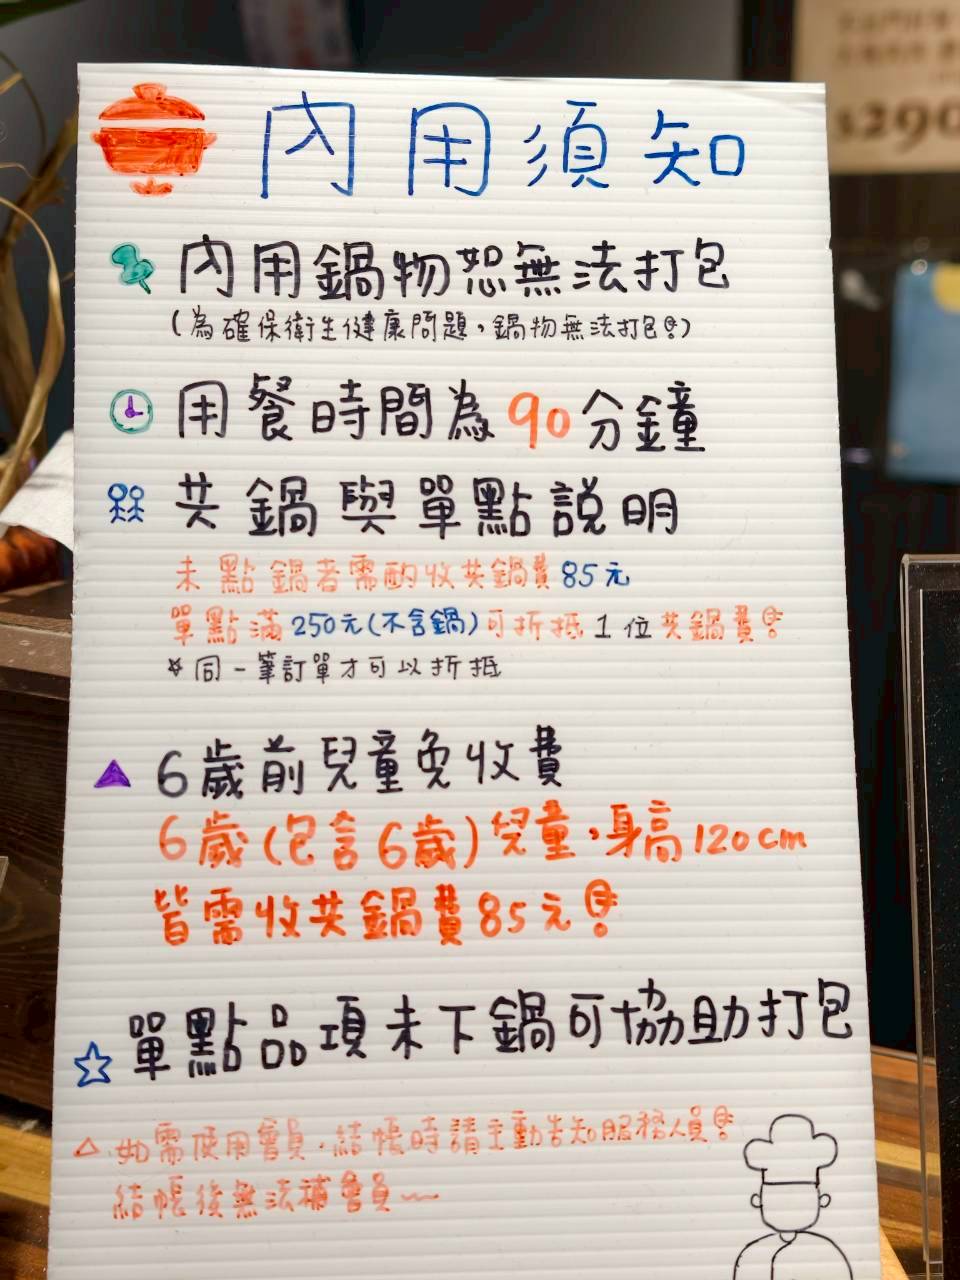 內用須知
內用鍋物恕無法打包
(為確保衛生健康問題,鍋物無法打包!)
用餐時間為90分鐘
共鍋與單點說明
未點鍋者需酌收共鍋費85元
單點滿250元(不含鍋)可折抵1位共鍋費!
*同一筆訂單才可以折抵
6歲前兒童免收費
6歲(包含6歲)兒童,身高120cm
皆需收共鍋費85元!
單點品項未下鍋可協助打包
如需使用會員,結帳時請主動告知服務人員!
結帳後無法補會員~
$290